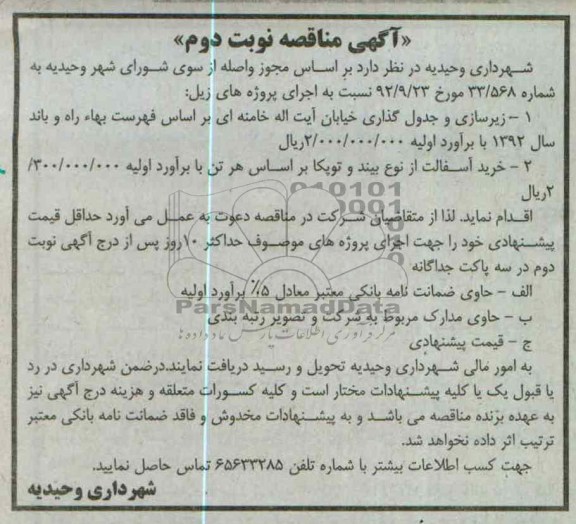 «آگهی مناقصه نوبت دوم»
شهرداری وحیدیه در نظر دارد بر اساس مجوز واصله از سوی شورای شهر وحیدیه به
شماره ۳۳/۵۶۸ مورخ ۹۲/۹/۲۳ نسبت به اجرای پروژه های زیل:
۱ – زیرسازی و جدول گذاری خیابان آیت اله خامنه ای بر اساس فهرست بهاء راه و باند
سال ۱۳۹۲ با برآورد اولیه ۲/۰۰۰/۰۰۰/۰۰۰ریال
۲ – خرید آسفالت از نوع بیند و توپکا بر اساس هر تن با برآورد اولیه ۳۰۰/۰۰۰/۰۰۰/
۲ریال
اقدام نماید. لذا از متقاضیان شرکت در مناقصه دعوت به عمل می آورد حداقل قیمت
پیشنهادی خود را جهت اجرای پروژه های موصوف حداکثر ۱۰روز پس از درج آگهی نوبت
دوم در سه پاکت جداگانه
الف – حاوی ضمانت نامه بانکی معتبر معادل ۵٪ برآورد اولیه
ب – حاوی مدارک مربوط به شرکت و تصویر رتبه بندی
ParsNamadData
مرکز فرآوری اطلاعات پارس نماد داده ها
ج – قیمت پیشنهادی
به امور مالی شهرداری وحیدیه تحویل و رسید دریافت نمایند.درضمن شهرداری در رد
یا قبول یک یا کلیه پیشنهادات مختار است و کلیه کسورات متعلقه و هزینه درج آگهی نیز
به عهده برنده مناقصه می باشد و به پیشنهادات مخدوش و فاقد ضمانت نامه بانکی معتبر
ترتیب اثر داده نخواهد شد.
جهت کسب اطلاعات بیشتر با شماره تلفن ۶۵۶۳۳۲۸۵ تماس حاصل نمایید.
شهرداری وحیدیه